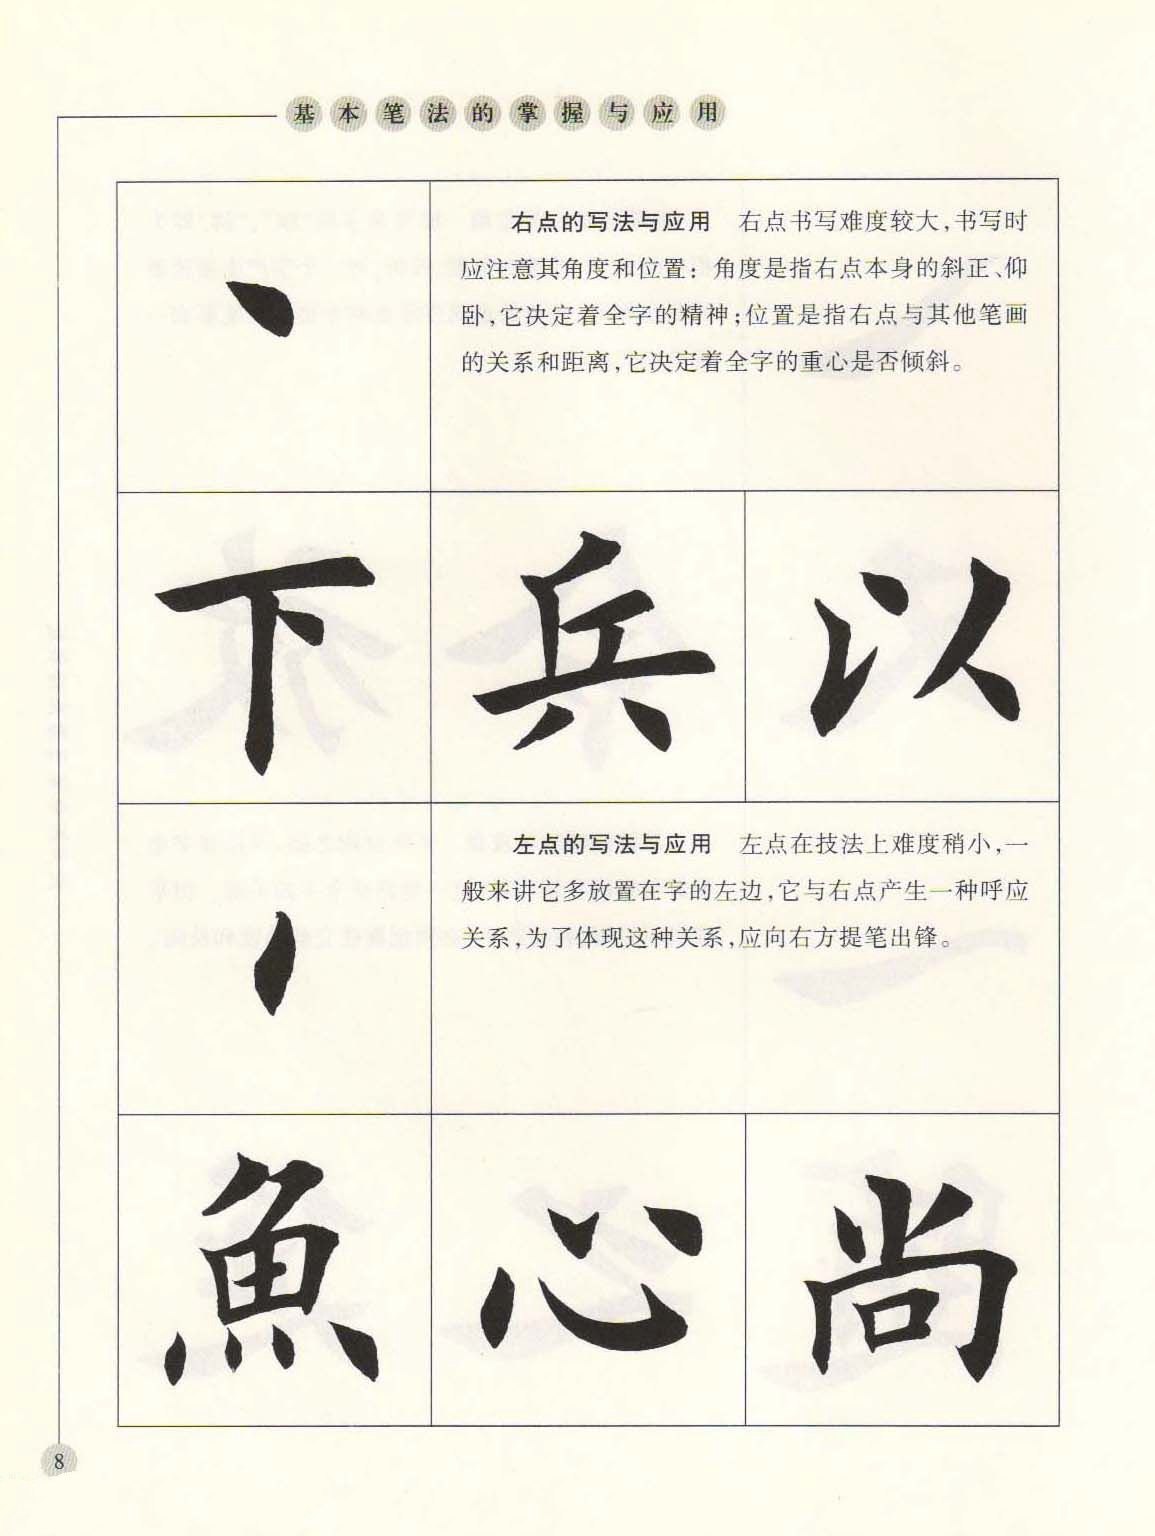 基本笔法的掌握与应用
丶
右点的写法与应用　右点书写难度较大,书写时
应注意其角度和位置：角度是指右点本身的斜正、仰
卧,它决定着全字的精神;位置是指右点与其他笔画
的关系和距离,它决定着全字的重心是否倾斜。
下 兵 以
左点的写法与应用　左点在技法上难度稍小,一
般来讲它多放置在字的左边,它与右点产生一种呼应
关系,为了体现这种关系,应向右方提笔出锋。
魚 心 尚
8